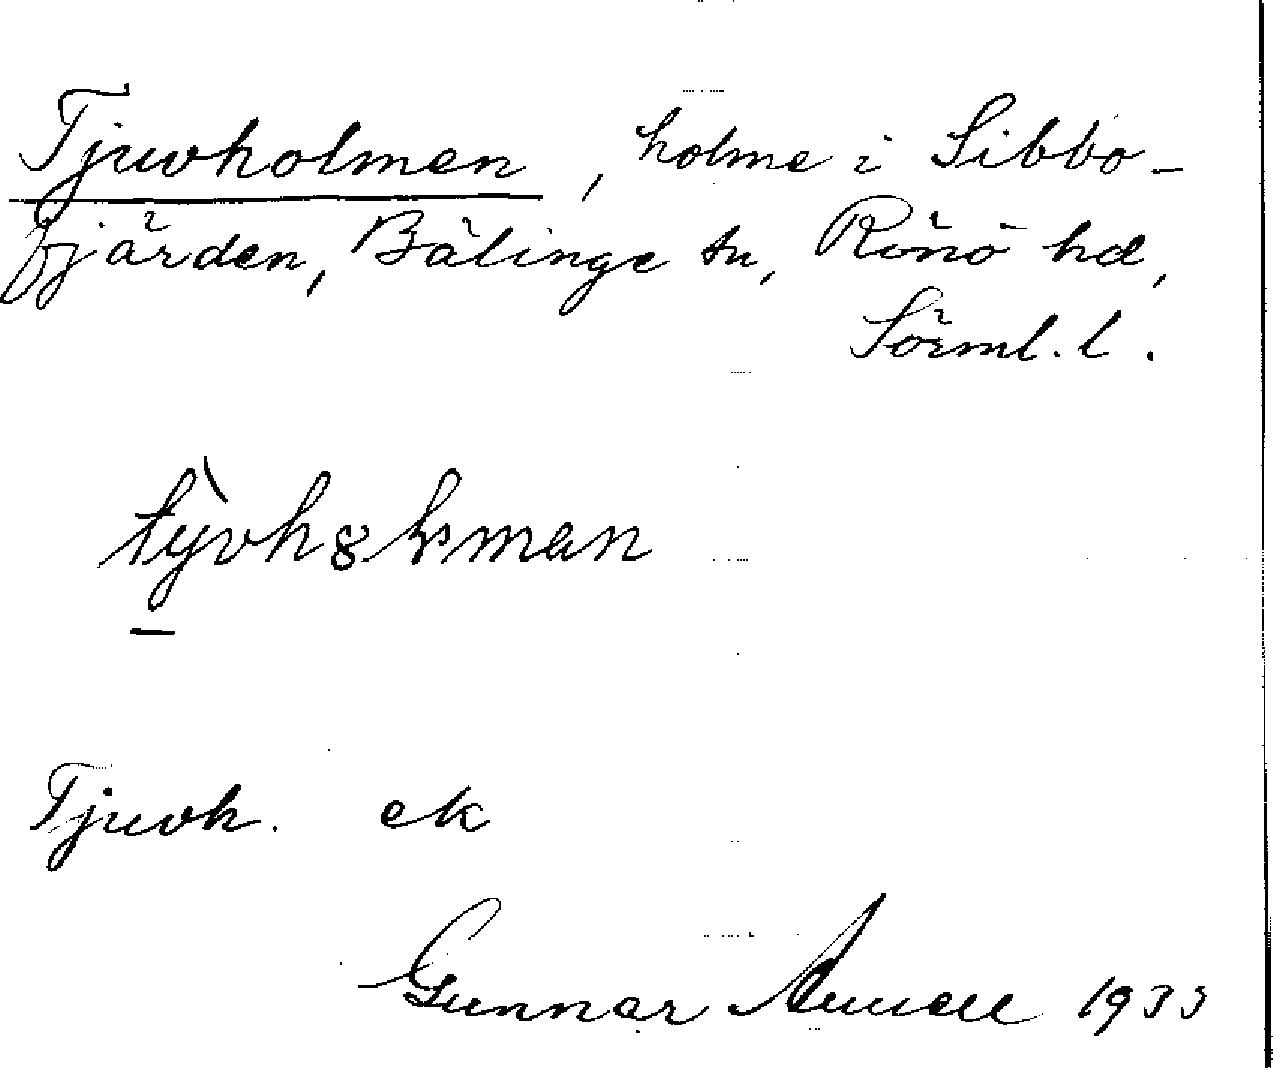 Tjuvholmen, holme i Sibbo-
fjärden, Bälinge sn, Rönö hd,
Sörml. l.
Tjuvh. ek
Gunnar 1933